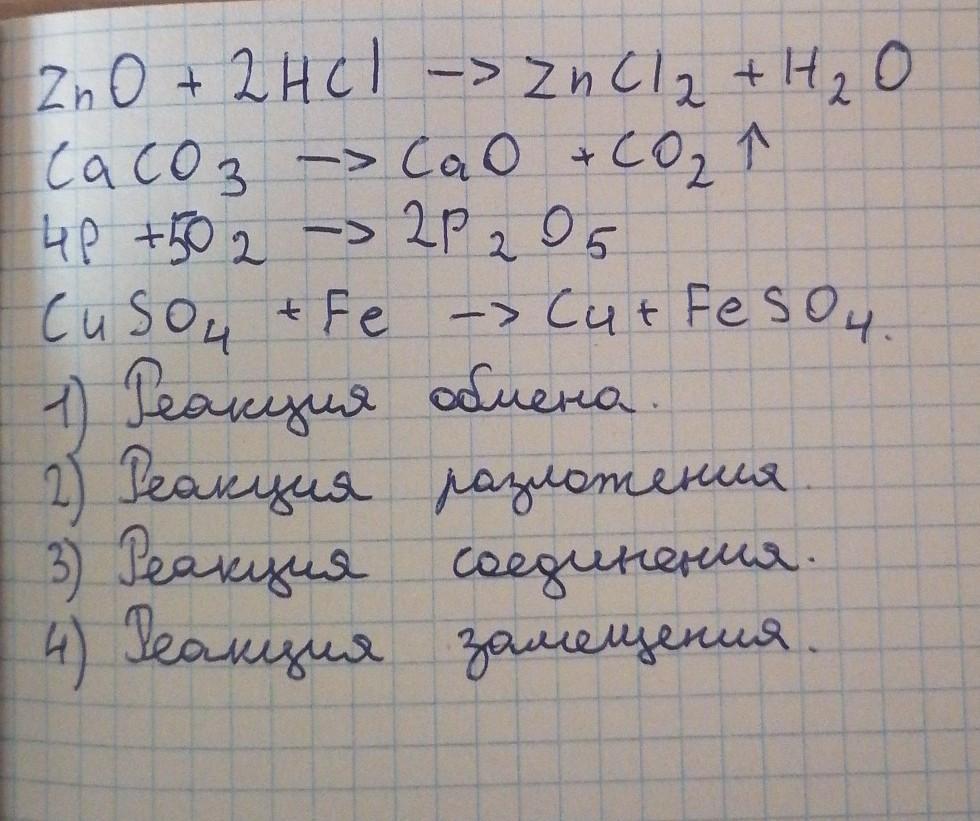 ZnO + 2HCl -> ZnCl₂ + H₂O
CaCO₃ -> CaO + CO₂↑
4P + 5O₂ -> 2P₂O₅
CuSO₄ + Fe -> Cu + FeSO₄.
1) Реакция обмена.
2) Реакция разложения.
3) Реакция соединения.
4) Реакция замещения.